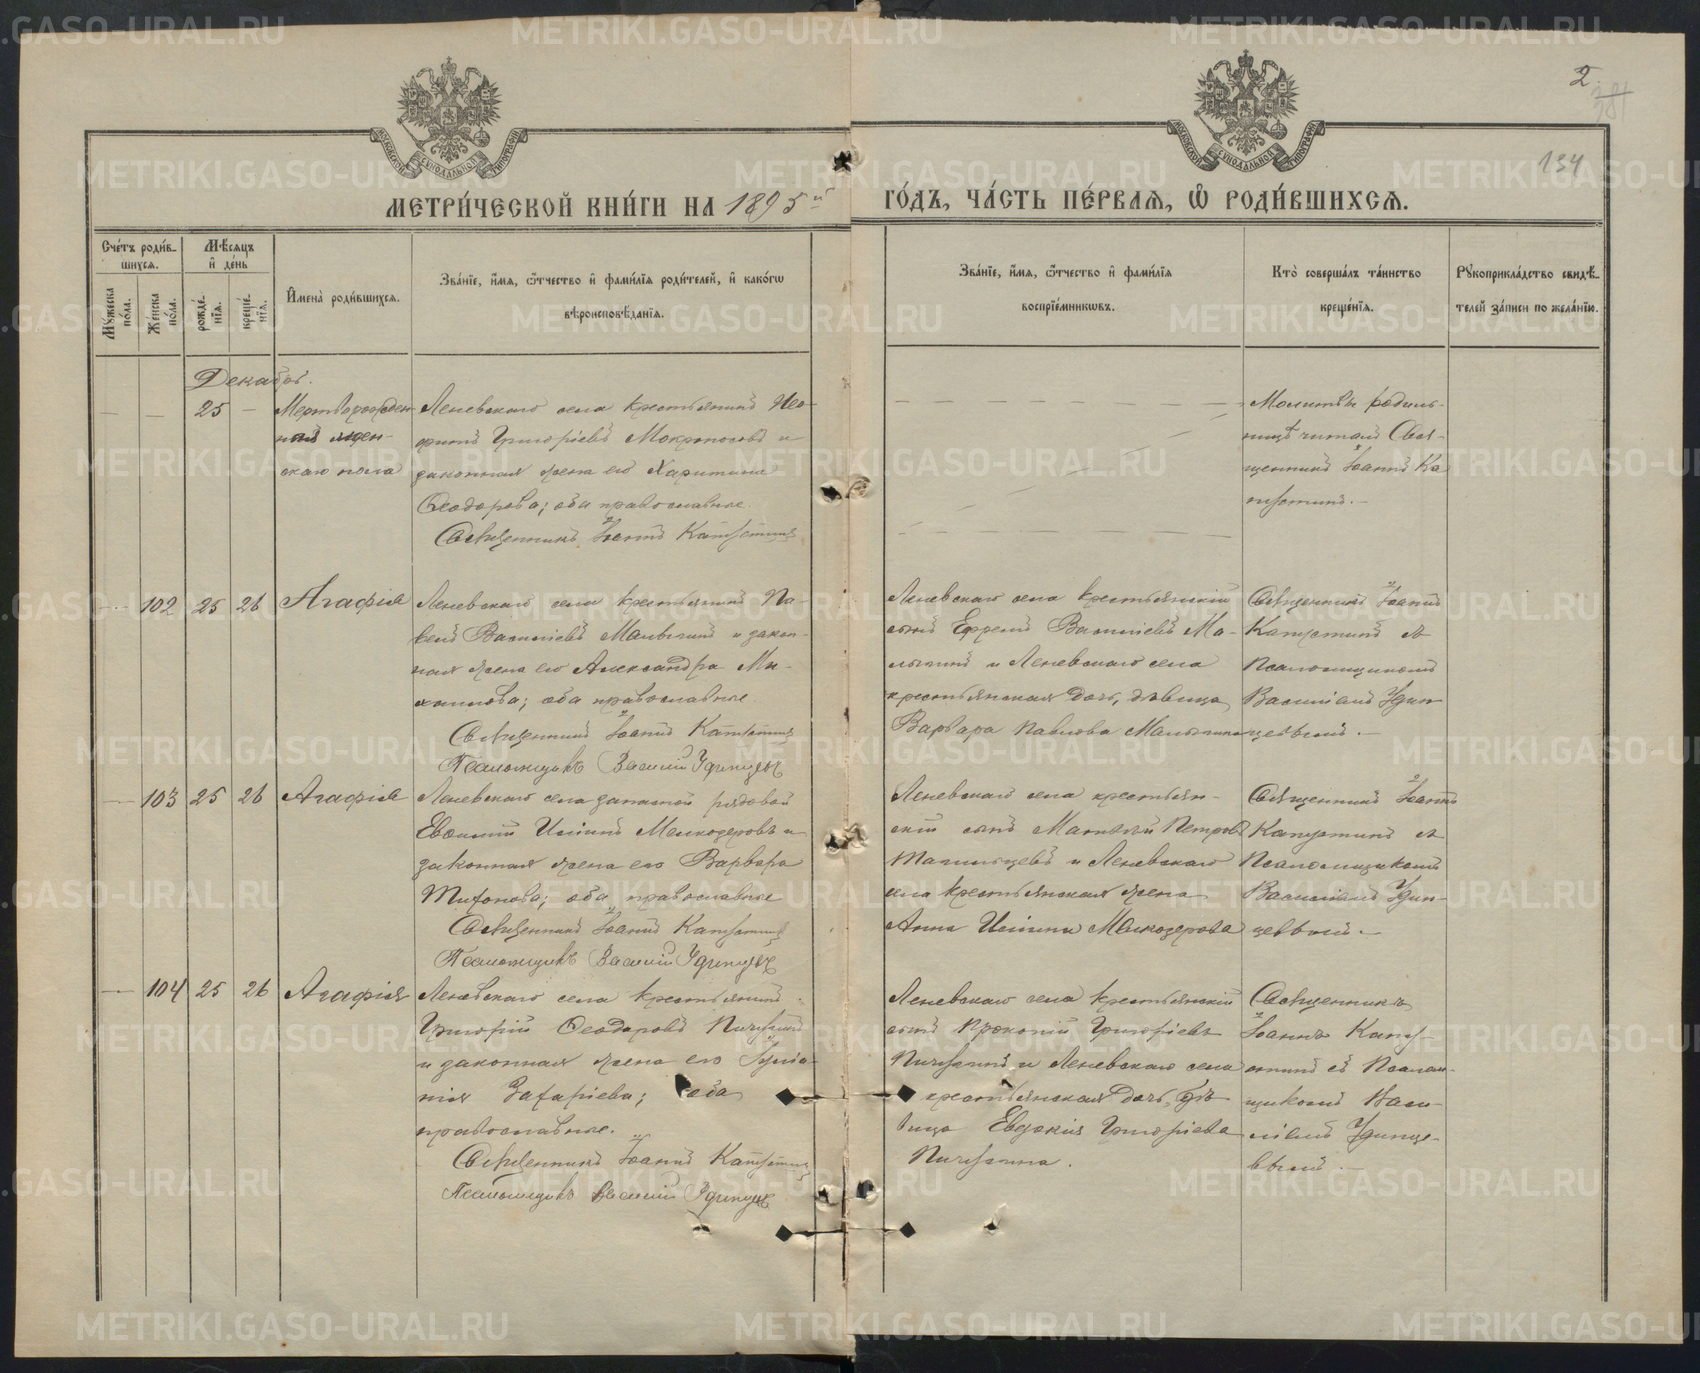 2
134
МЕТРИ́ЧЕСКОЙ КНИ́ГИ НА 1895й ГО́ДЪ, ЧА́СТЬ ПЕ́РВАѦ, Ѡ РОДИ́ВШИХСѦ.
Сче́тъ роди́в-
шихсѧ.
Мꙋ́жеска по́ла.
Же́нска по́ла.
Мѣ́сѧцъ
и҆ де́нь
рожде́-
нїѧ.
креще́-
нїѧ.
И҆мена̀ роди́вшихсѧ.
Зва́нїе, и҆́мѧ, ѻ҆́тчество и҆ фами́лїѧ роди́телей, и҆ како́гѡ
вѣроисповѣ́данїѧ.
Зва́нїе, и҆́мѧ, ѻ҆́тчество и҆ фами́лїѧ
воспрїе́мникѡвъ.
Кто̀ соверша́лъ та́инство
креще́нїѧ.
Рꙋкоприкла́дство свидѣ́-
телей за́писи по жела́нїю.
Декабрь.
25 —
Мертворожден-
ный жен-
скаго пола
Леневскаго села крестьянинъ Нео-
фитъ Григоріевъ Мокроносовъ и
законная жена его Харитина
Ѳеодорова; оба православные.
Священникъ Іоаннъ Капустинъ
Молитвы родиль-
ницѣ читалъ Свя-
щенникъ Іоаннъ Ка
пустинъ.—
102 25 26 Агафія
Леневскаго села крестьянинъ Па-
велъ Васильевъ Малыгинъ и закон-
ная жена его Александра Ми-
хаилова; оба православные
Священникъ Іоаннъ Капустинъ
Псаломщикъ Василій Удинцевъ
Леневскаго села крестьянскій
сынъ Ефремъ Васильевъ Ма-
лыгинъ и Леневскаго села
крестьянская дочь, дѣвица
Варвара Павлова Малыгина
Священникъ Іоаннъ
Капустинъ съ
Псаломщикомъ
Василіемъ Удин-
цевымъ.—
103 25 26 Агафія
Леневскаго села запасной рядовой
Евсимій Илiинъ Мелкозеровъ и
законная жена его Варвара
Тихонова; оба православные
Священникъ Іоаннъ Капустинъ
Псаломщикъ Василій Удинцевъ
Леневскаго села крестьян-
скій сынъ Матвѣй Петровъ
Тагильцевъ и Леневскаго
села крестьянская жена
Анна Илiина Мелкозерова
Священникъ Іоаннъ
Капустинъ съ
Псаломщикомъ
Василіемъ Удин-
цевымъ.—
104 25 26 Агафія
Леневскаго села крестьянинъ
Григорій Ѳеодоровъ Пичугинъ
и законная жена его Іулiа-
нія Захаріева; оба
православные.
Священникъ Іоаннъ Капустинъ
Псаломщикъ Василій Удинцевъ
Леневскаго села крестьянскій
сынъ Прокопій Григоріевъ
Пичугинъ и Леневскаго села
крестьянская дочь, дѣ-
вица Евдокія Григоріева
Пичугина.
Священникъ
Іоаннъ Капу-
стинъ съ Псалом-
щикомъ Васи-
ліемъ Удинце-
вымъ.—